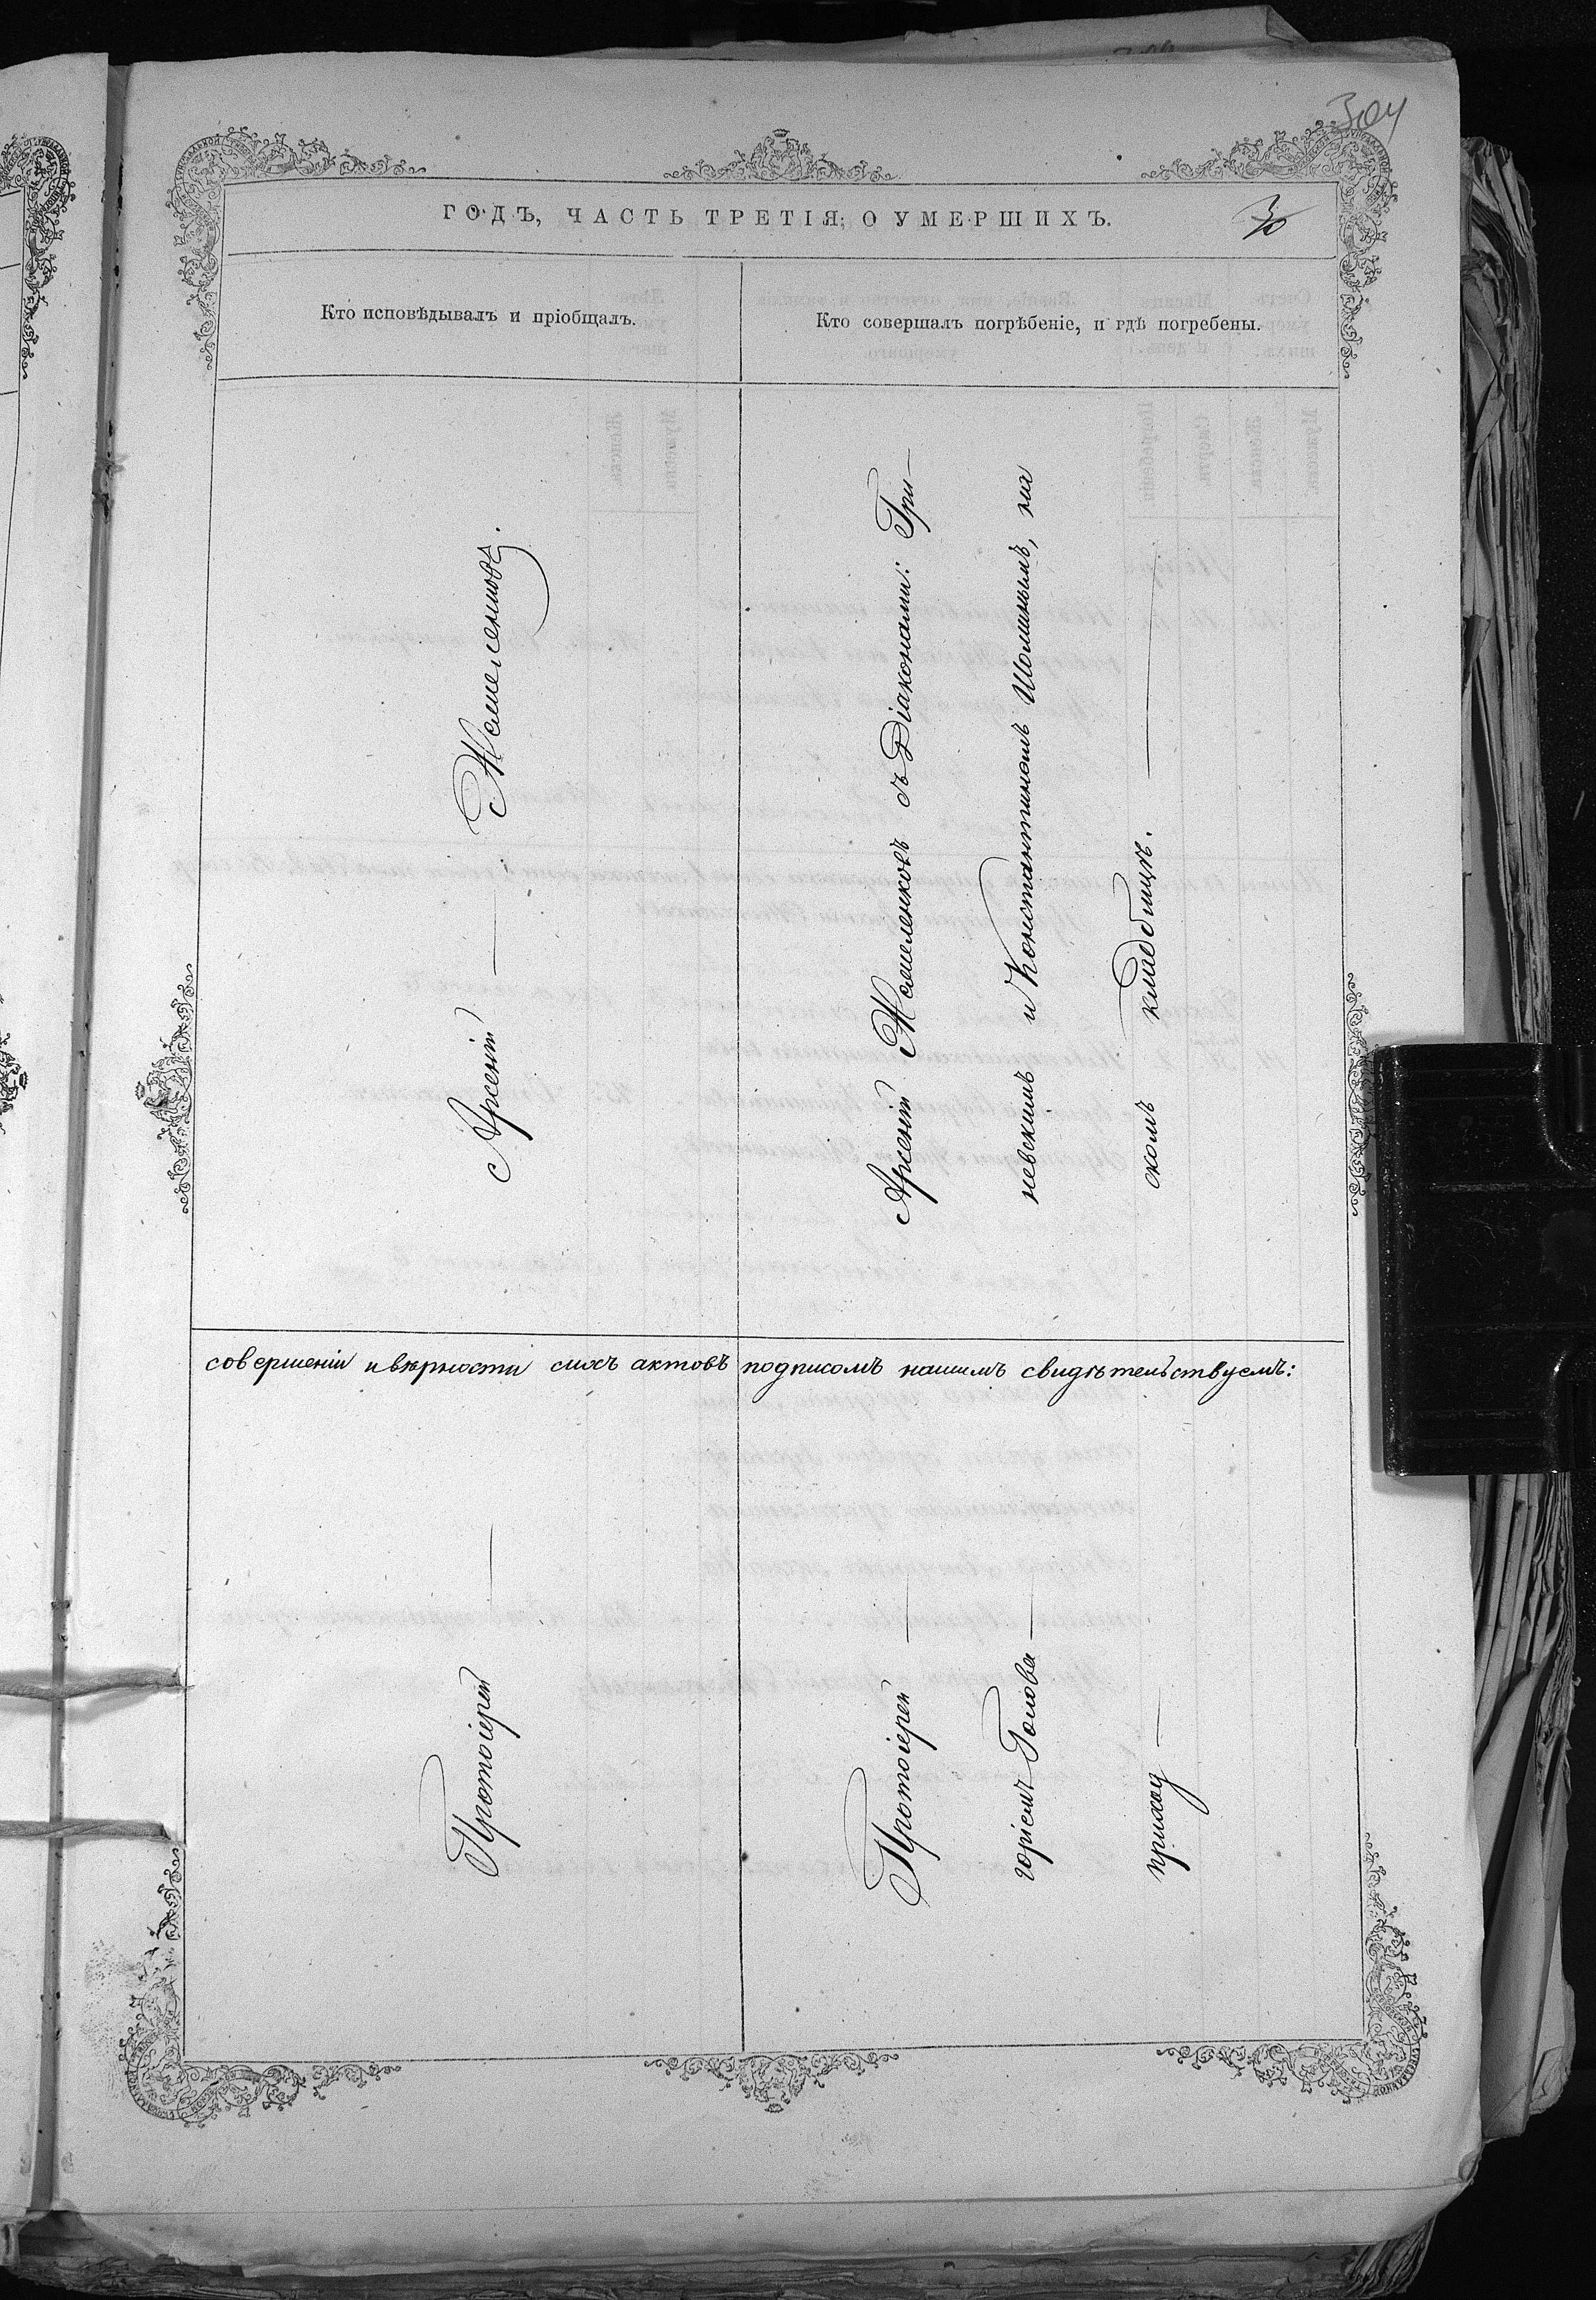 304
ГОДЪ, ЧАСТЬ ТРЕТІЯ, О УМЕРШИХЪ.
30
Кто исповѣдывалъ и пріобщалъ.
Кто совершалъ погрѣбеніе, и гдѣ погребены.
Протоіерей — Арсеній — Жемеленковъ.
Протоіерей — Арсеній Жемеленковъ съ Діаконами: Гри-
горіемъ Голова — невскимъ и Константиномъ Шолинымъ, на
приход — скомъ кладбищѣ. —
совершеніи и вѣрности сихъ актовъ подписомъ нашимъ свидѣтельствуемъ: